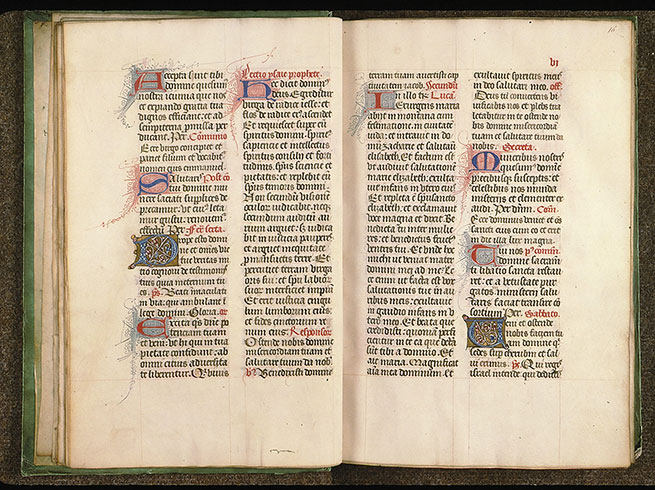 Accepta sint tibi
domine quesum
nostra ieiunia que nos
et expiando gratia tua
dignos efficiant: et ad
sempiterna promissa per
ducant. Per. Communio
Ecce virgo concipiet et
pariet filium et vocabit
nomen eius emmanuel.
Salutaris Post co
tui domine mu
nere saciati supplices de
precamur: ut cuius leta
mur gustu: renouemur
effectu. Per.
Prope esto domi
ne et omnes vie
tue veritas ini
tio cognoui de testimonijs
tuis quia in eternum tu
es. ps. Beati immaculati
in via: qui ambulant in
lege domini. Gloria. or
Excita qs domine po
tentiam tuam
et veni: ut hij qui in tua
pietate confidunt: ab
omni citius aduersita
te liberentur. Qui viuis
Lectio ysaie prophete.
Hec dicit dominus
deus Egredietur
virga de radice iesse: et
flos de radice eius ascendet
Et requiescet super eum
spiritus domini. spiritus
sapiencie et intellectus
spiritus consilij et forti
tudinis. spiritus sciencie et
pietatis: et replebit eum
spiritus timoris domini.
Non secundum visionem
oculorum iudicabit. neque
secundum auditum au
rium arguet: sed iudica
bit in iusticia pauperes
et arguet in equitate
pro mansuetis terre. Et
percutiet terram virga
oris sui: et spiritu labiorum
suorum interficiet impium
Et erit iusticia cingulum
lumborum eius:
et fides cinctorium re
num eius. Responsor
Ostende nobis domine
misericordiam tuam et
salutare tuum da nobis
V. Benedixisti domine
16
vi
terram tuam auertisti cap
tiuitatem iacob. Secundum
In illo tempore Lucam
Exurgens maria
abijt in montana cum
festinatione. in ciuitatem
iuda: et intrauit in do
mum zacharie et salutauit
elisabeth. Et factum est
ut audiuit salutationem
marie elizabeth: exulta
uit infans in vtero eius.
Et repleta est spiritu sancto
elizabeth: et exclamauit
voce magna et dixit. Be
nedicta tu inter mulie
res: et benedictus fructus
ventris tui. Et vnde hoc
michi ut veniat mater
domini mei ad me? Ec
ce enim ut facta est vox
salutationis tue in au
ribus meis: exultauit
in gaudio infans in v
tero meo. Et beata que
credidisti: quoniam perfi
cientur in te ea que dicta
sunt tibi a domino. Et
ait maria. Magnificat
anima mea dominum. et
exultauit spiritus meus
in deo salutari meo. off.
Deus tu conuertens vi
uificabis nos et plebs tua
letabitur in te ostende no
bis domine misericordiam
tuam et salutare tuum da
nobis. Secreta.
Muneribus nostris
quesumus domine
precibusque susceptis: et
celestibus nos munda
misterijs et clementer ex
audi. Per dominum. Com.
Ecce dominus veniet et omnes
sancti eius cum eo et erit
in die illa lux magna.
Tui nos
domine sacramenti
libatio sancta restau
ret: et a vetustate pur
gatos in misterij salu
taris faciat transire con
sortium. Per. Sabbato.
Veni et ostende
nobis faciem tu
am domine qui
sedes super cherubin et sal
ui erimus. ps. Qui regis
israel intende qui deducis